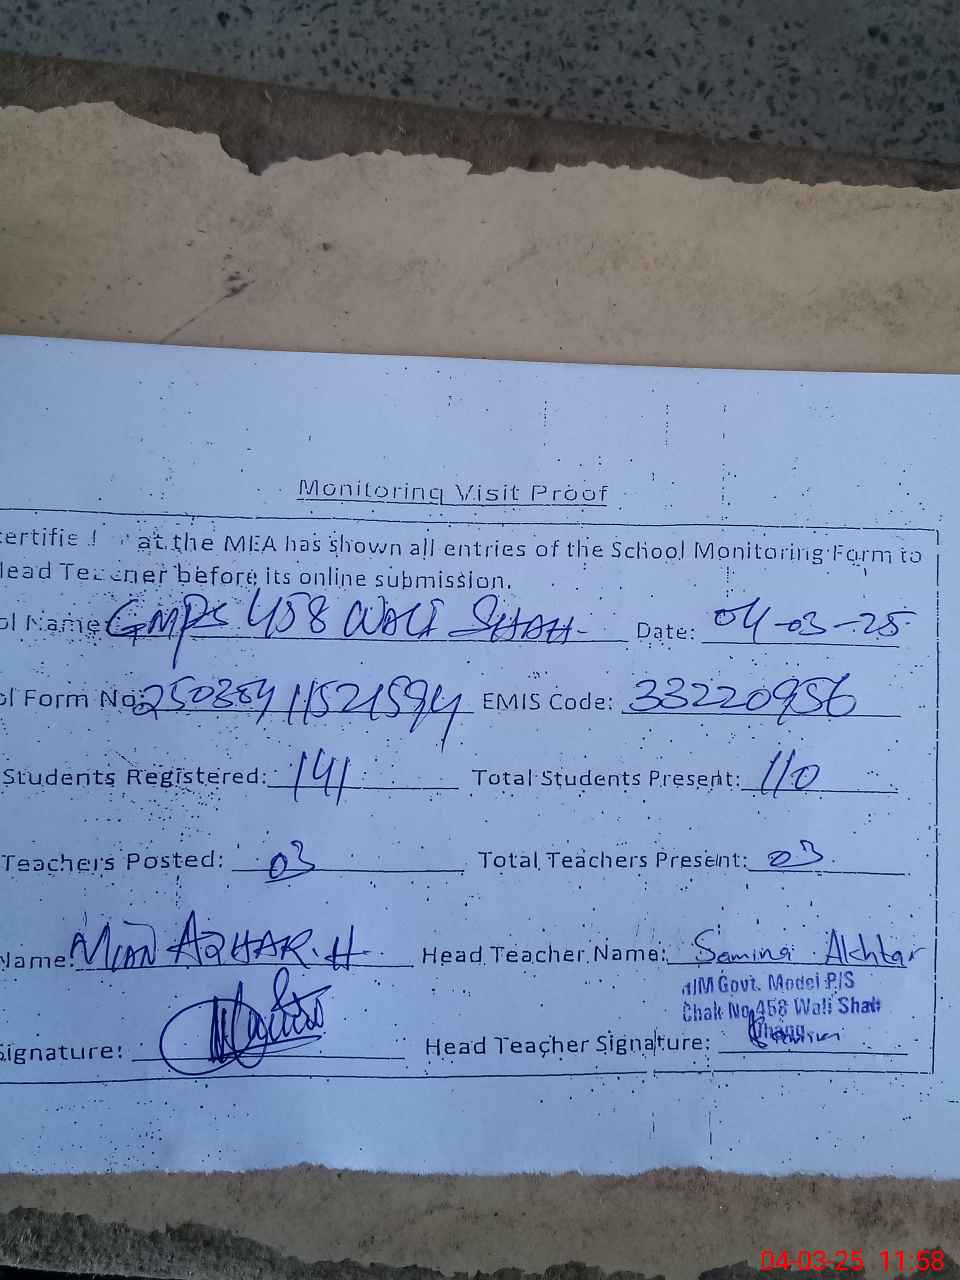 Monitoring Visit Proof
at the MEA has shown all entries of the School Monitoring Form to
before its online submission.
Name GMPS 458 WALI SHAH Date: 04-03-25
Form No: EMIS Code: 33220956
Students Registered: 141 Total Students Present: 110
Teachers Posted: 03 Total Teachers Present: 03
Name: MIAN AZHAR.H Head Teacher Name: Samina Akhtar
H/M Govt. Model P/S
Chak No.458 Wali Shah
Jhang
Signature: Head Teacher Signature:
04-03-25 11:58